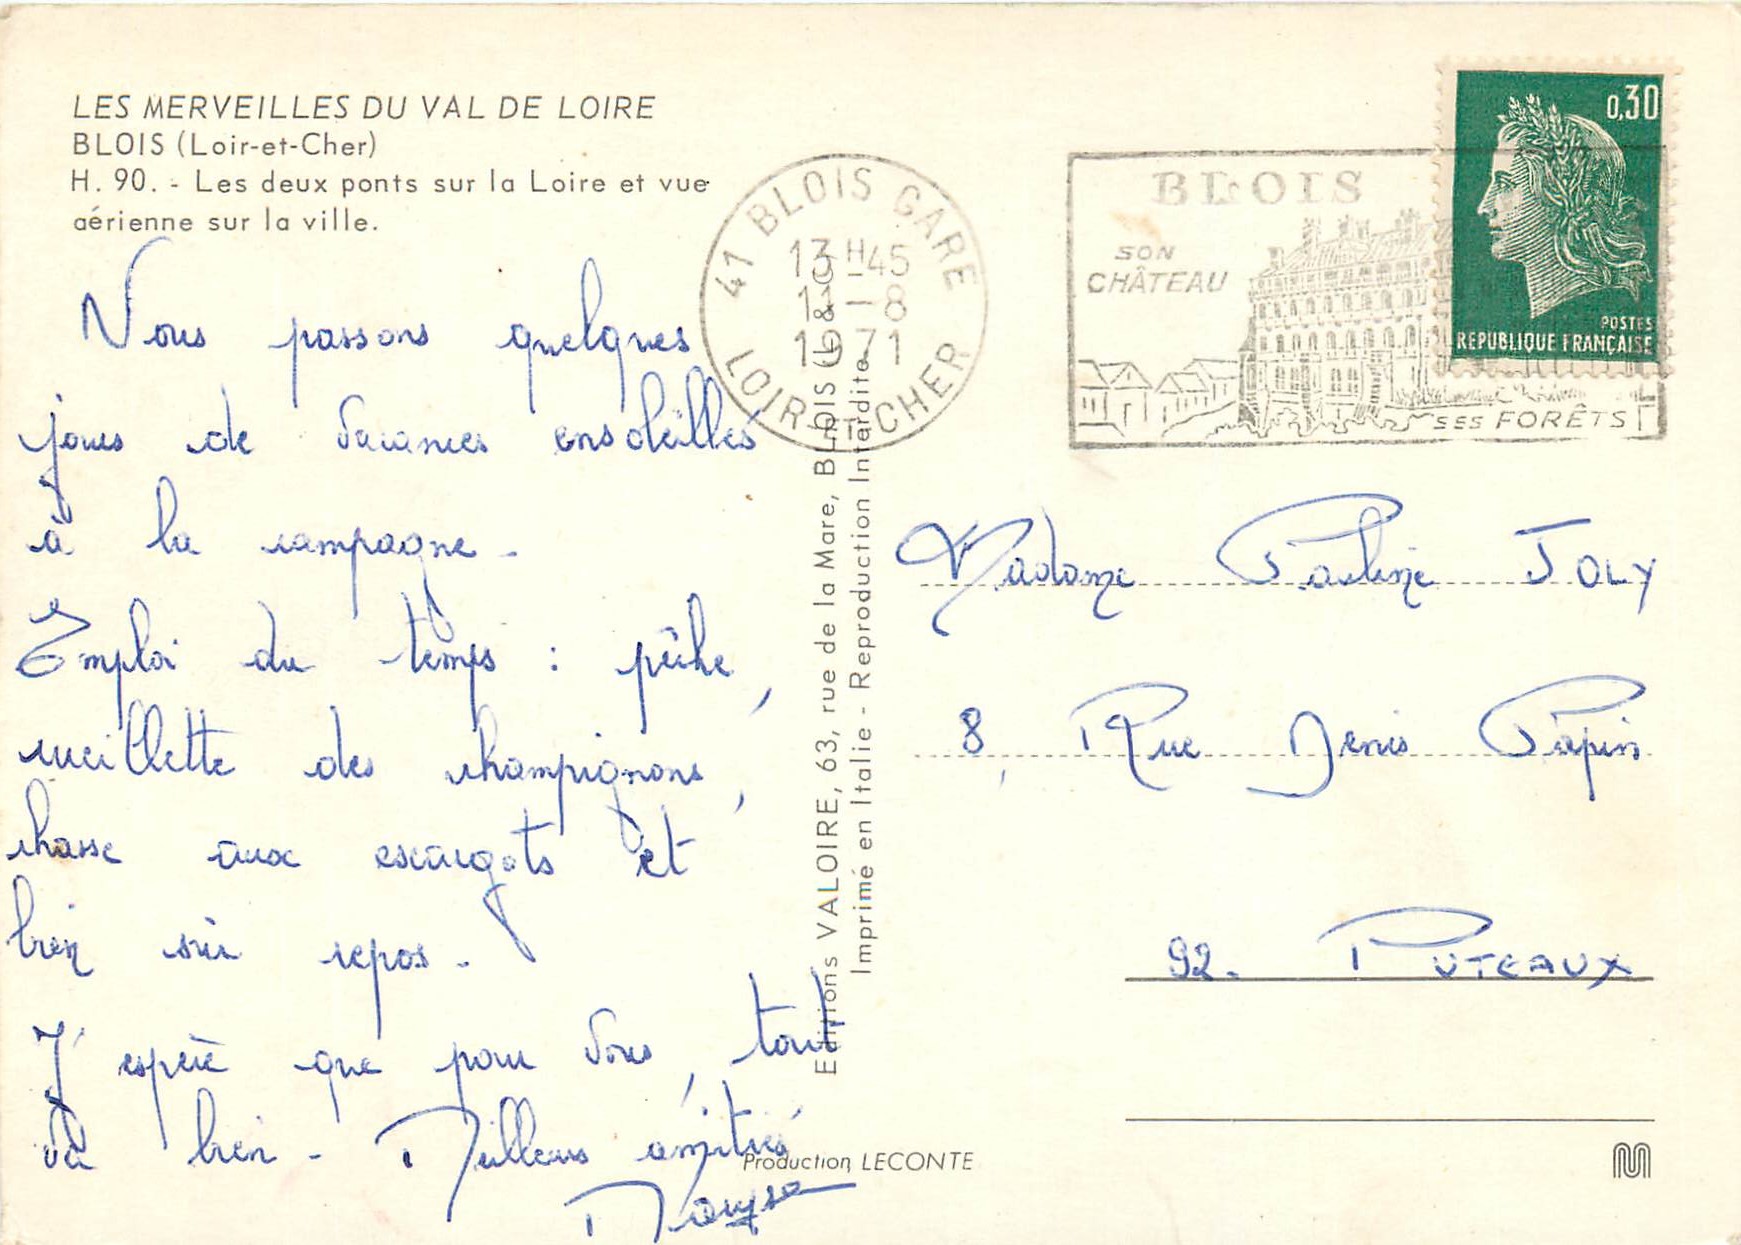 LES MERVEILLES DU VAL DE LOIRE
BLOIS (Loir-et-Cher)
H. 90. - Les deux ponts sur la Loire et vue
aérienne sur la ville.
Nous passons quelques
jours de vacances ensoleillés
à la campagne -
Emploi du temps : pêche,
cueillette des champignons,
chasse aux escargots et
bien sûr repos.
J'espère que pour vous, tout
va bien - Meilleures amitiés
41 BLOIS GARE
13H45
-8
1971
LOIR-ET-CHER
BLOIS
SON
CHÂTEAU
SES FORÊTS
0,30
POSTES
REPUBLIQUE FRANÇAISE
Editions VALOIRE, 63, rue de la Mare, BLOIS (L.-&-C.)
Imprimé en Italie - Reproduction Interdite
Madame Pauline JOLY
8, Rue Denis Papin
92. PUTEAUX
Production LECONTE